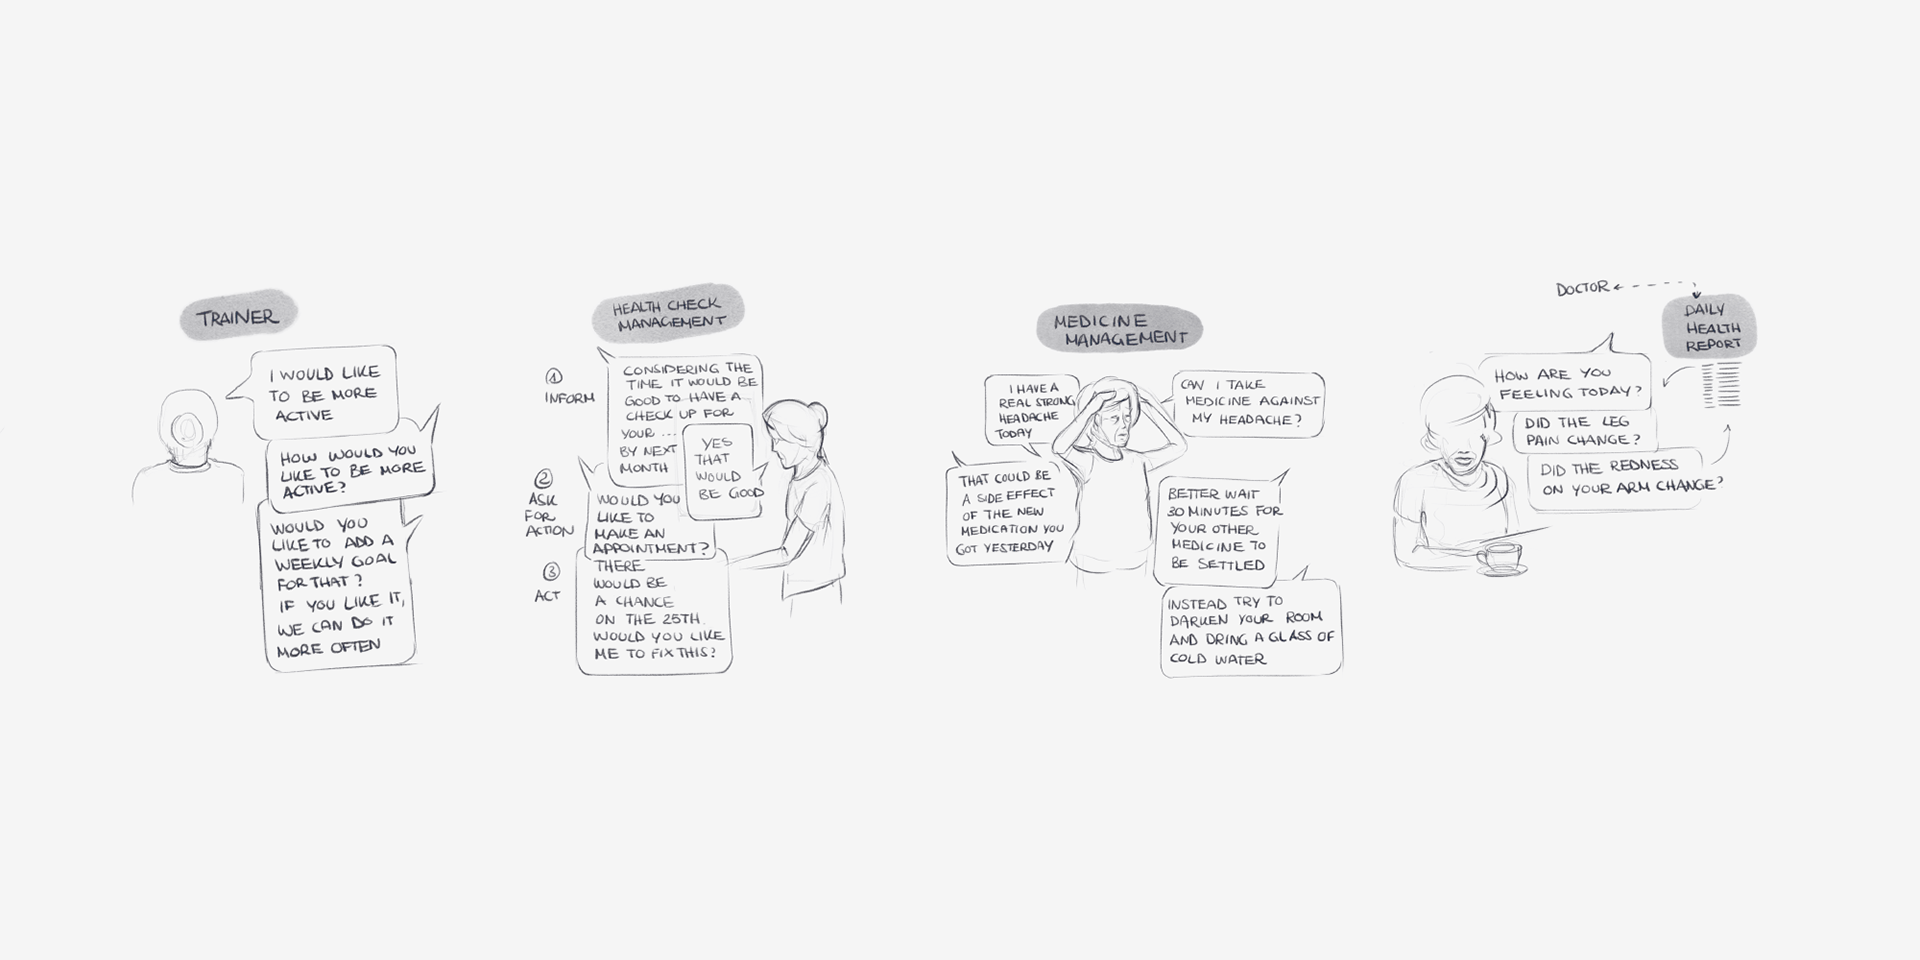 TRAINER
I WOULD LIKE
TO BE MORE
ACTIVE
HOW WOULD YOU
LIKE TO BE MORE
ACTIVE?
WOULD YOU
LIKE TO ADD A
WEEKLY GOAL
FOR THAT?
IF YOU LIKE IT,
WE CAN DO IT
MORE OFTEN
HEALTH CHECK
MANAGEMENT
1
INFORM
CONSIDERING THE
TIME IT WOULD BE
GOOD TO HAVE A
CHECK UP FOR
YOUR ...
BY NEXT
MONTH
YES
THAT
WOULD
BE GOOD
2
ASK
FOR
ACTION
WOULD YOU
LIKE TO
MAKE AN
APPOINTMENT?
3
ACT
THERE
WOULD BE
A CHANCE
ON THE 25TH.
WOULD YOU LIKE
ME TO FIX THIS?
MEDICINE
MANAGEMENT
I HAVE A
REAL STRONG
HEADACHE
TODAY
THAT COULD BE
A SIDE EFFECT
OF THE NEW
MEDICATION YOU
GOT YESTERDAY
CAN I TAKE
MEDICINE AGAINST
MY HEADACHE?
BETTER WAIT
30 MINUTES FOR
YOUR OTHER
MEDICINE TO
BE SETTLED
INSTEAD TRY TO
DARKEN YOUR ROOM
AND DRING A GLASS OF
COLD WATER
DOCTOR
DAILY
HEALTH
REPORT
HOW ARE YOU
FEELING TODAY?
DID THE LEG
PAIN CHANGE?
DID THE REDNESS
ON YOUR ARM CHANGE?